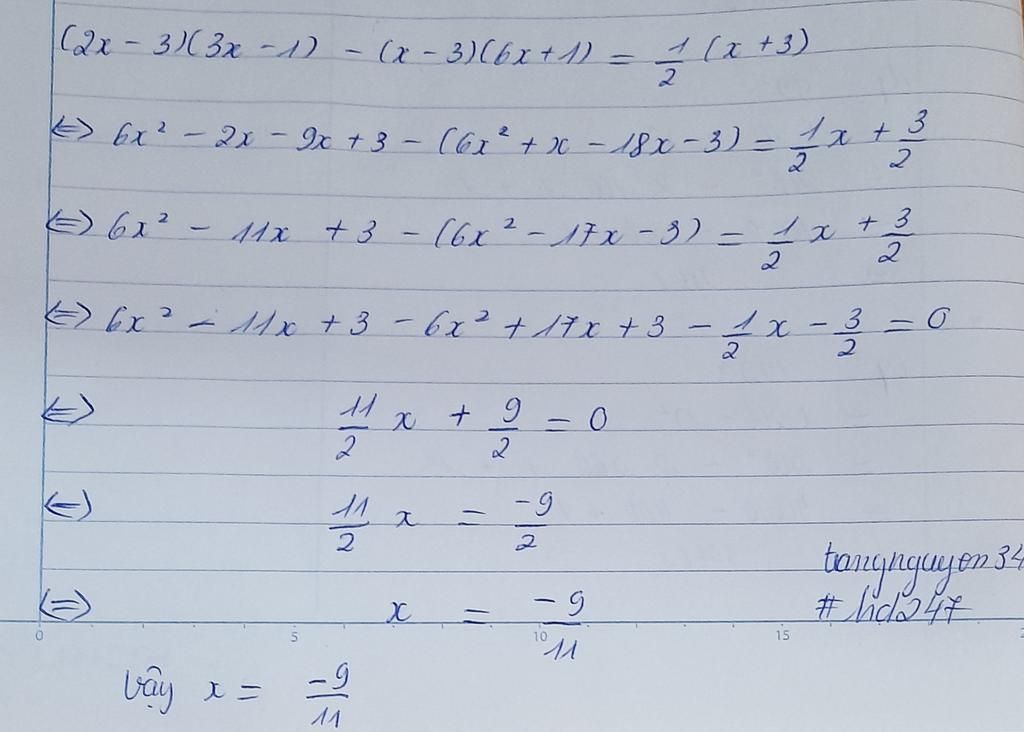 (2x - 3)(3x - 1) - (x - 3)(6x + 1) = 1/2 (x + 3)
<=> 6x² - 2x - 9x + 3 - (6x² + x - 18x - 3) = 1/2 x + 3/2
<=> 6x² - 11x + 3 - (6x² - 17x - 3) = 1/2 x + 3/2
<=> 6x² - 11x + 3 - 6x² + 17x + 3 - 1/2 x - 3/2 = 0
<=> 11/2 x + 9/2 = 0
<=> 11/2 x = -9/2
tangnguyen34
<=> x = -9/11
#hd247
0 5 10 15
Vậy x = -9/11